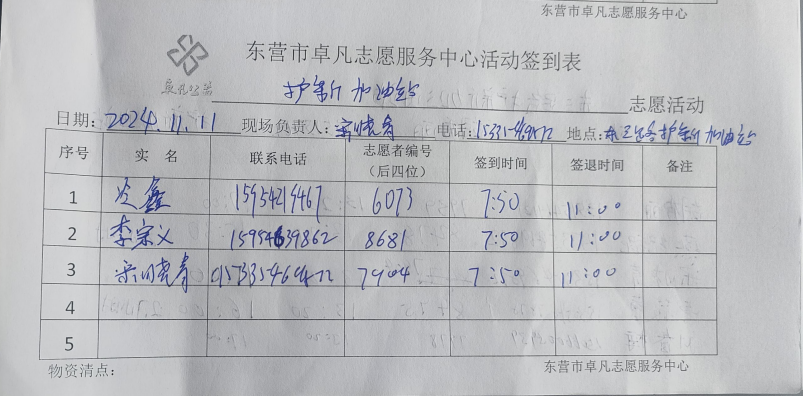 东营市卓凡志愿服务中心
东营市卓凡志愿服务中心活动签到表
卓凡公益
加油站 志愿活动
日期：2024.11.11 现场负责人： 电话： 地点： 加油站
序号 实 名 联系电话 志愿者编号（后四位） 签到时间 签退时间 备注
1 鑫 15954219467 6073 7:50 11:00
2 李宗义 15954639862 8681 7:50 11:00
3 7904 7:50 11:00
4
5
物资清点： 东营市卓凡志愿服务中心